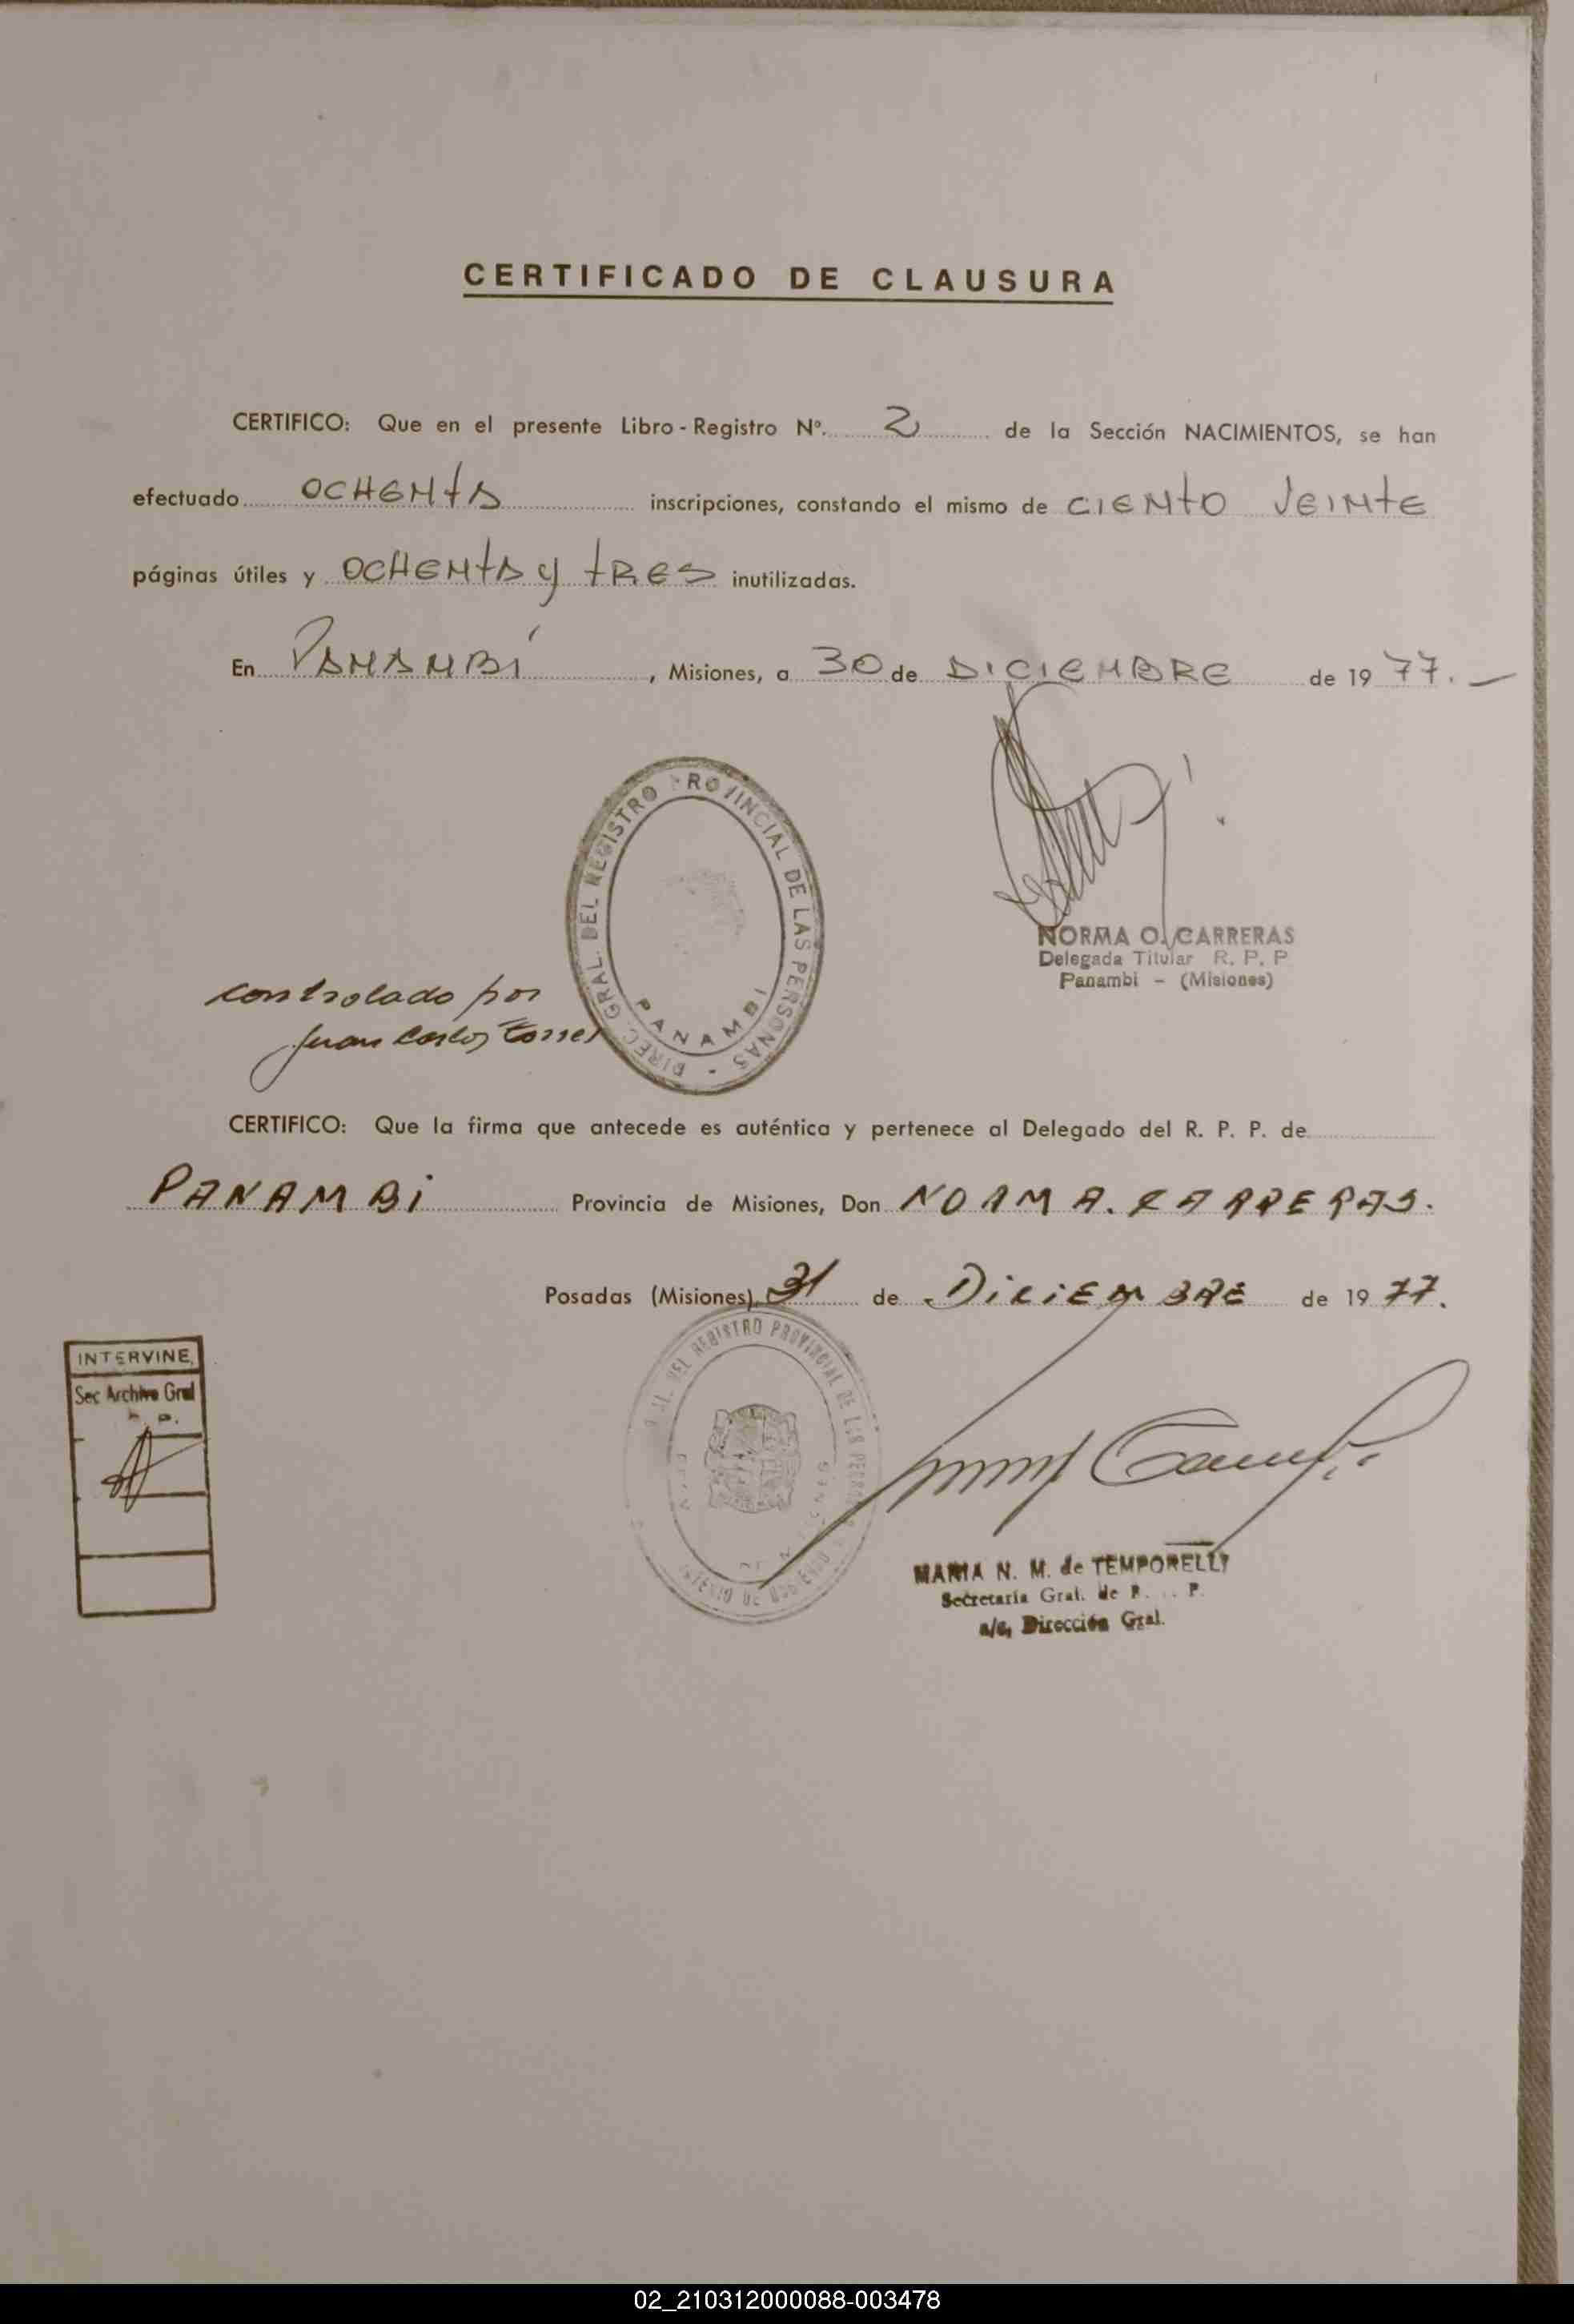 CERTIFICADO DE CLAUSURA
CERTIFICO: Que en el presente Libro - Registro Nº. 2 de la Sección NACIMIENTOS, se han
efectuado OCHENTA inscripciones, constando el mismo de CIENTO VEINTE
páginas útiles y OCHENTA y TRES inutilizadas.
En PANAMBÍ, Misiones, a 30 de DICIEMBRE de 1977.—
DIREC. GRAL. DEL REGISTRO PROVINCIAL DE LAS PERSONAS -
PANAMBI
NORMA O. CARRERAS
Delegada Titular R. P. P
Panambi - (Misiones)
controlado por
Juan Carlos Torres
CERTIFICO: Que la firma que antecede es auténtica y pertenece al Delegado del R. P. P. de
PANAMBI Provincia de Misiones, Don NORMA. CARRERAS.
Posadas (Misiones), 31 de DICIEMBRE de 1977.
DEL REGISTRO PROVINCIAL DE LAS
INTERVINE,
Sec Archivo Gral
P.
MARIA N. M. de TEMPORELLI
Secretaria Gral. de R. P.
a/c, Dirección Gral.
02_210312000088-003478